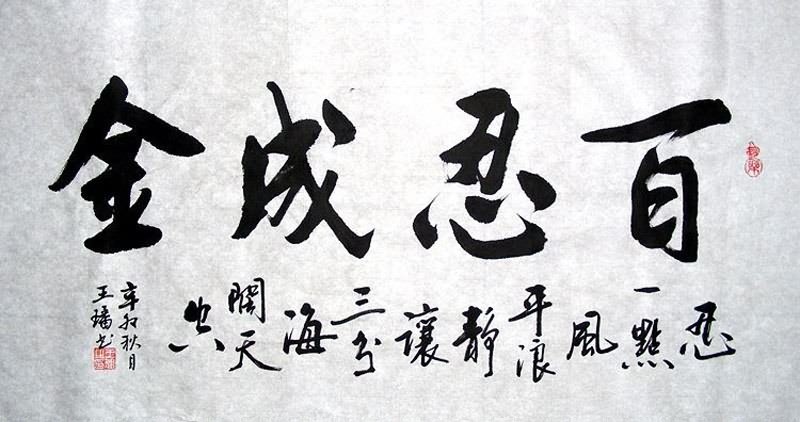 百忍成金
忍一點風平浪靜讓三分海闊天空
辛卯秋月
王璠书